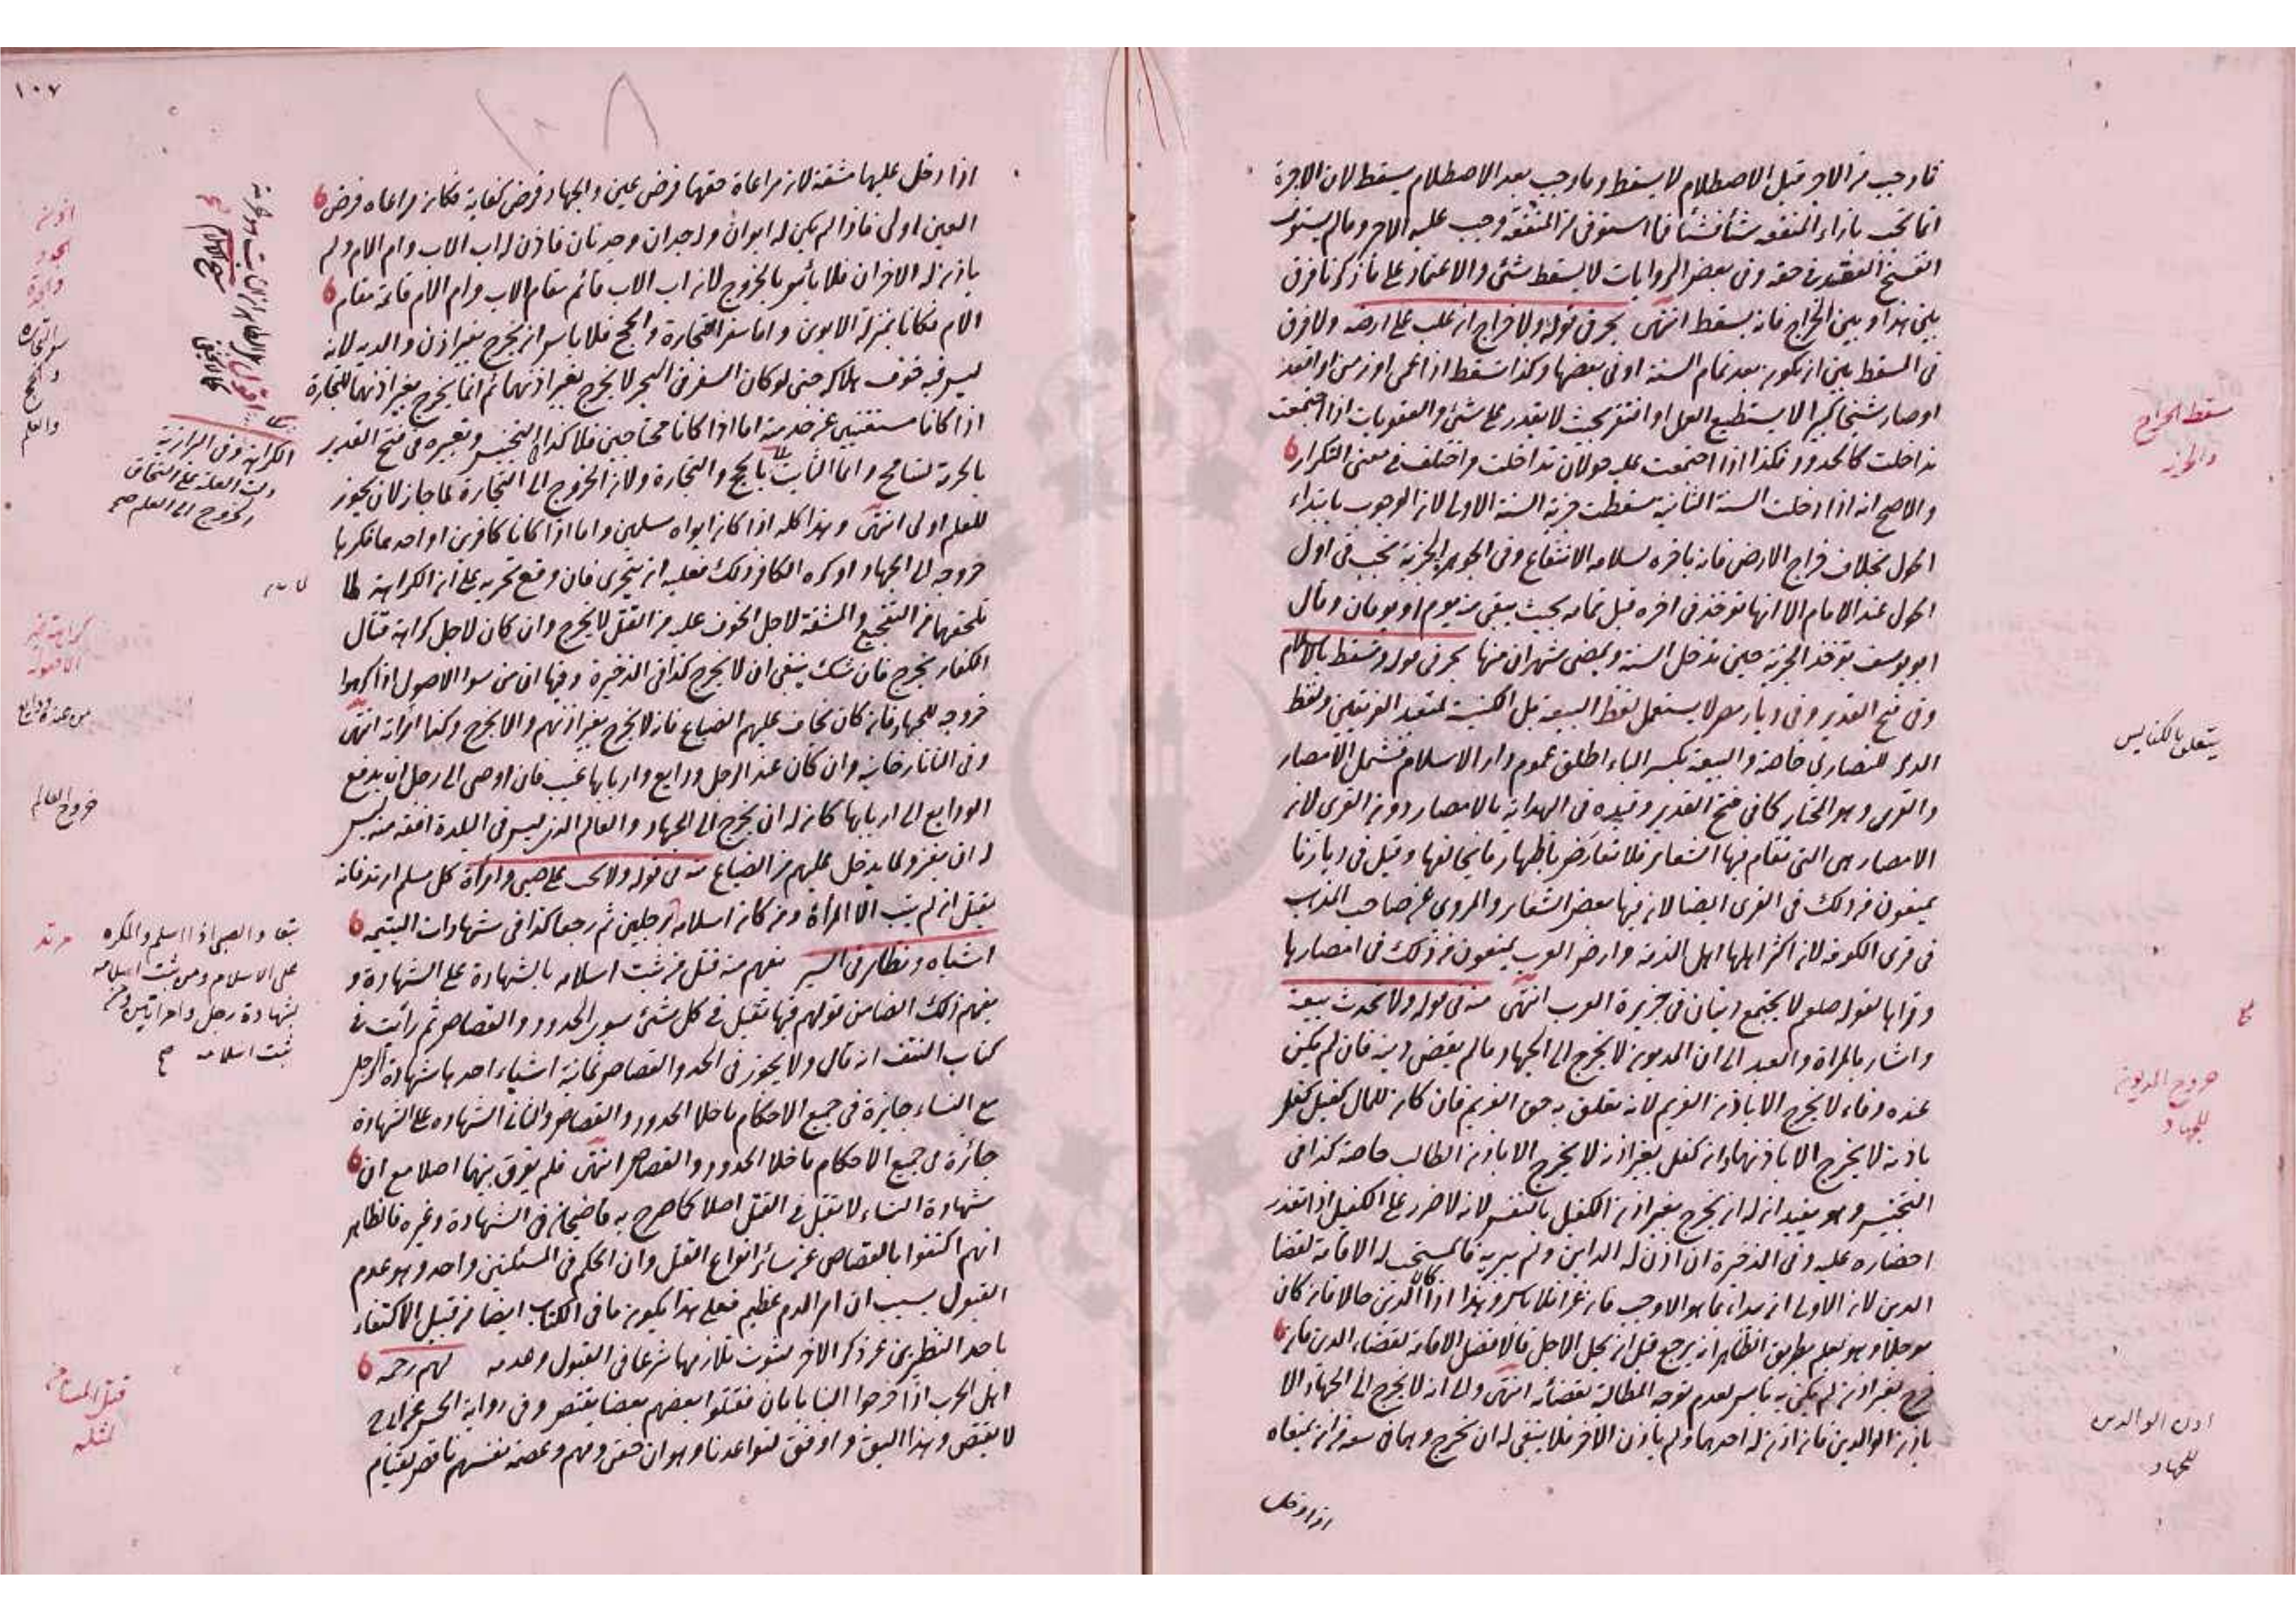 فما وجب من الاجر قبل الاصطلام لا يسقط وما وجب بعد الاصطلام يسقط لان الاجرة
انما تجب بازاء المنفعة شيأ فشيأ فما استوفى من المنفعة وجب عليه الاجر وما لم يستوف
انفسخ العقد في حقه وفى بعض الروايات لا يسقط شئ والاعتماد على ما ذكرنا فرق
بين هذا وبين الخراج فانه يسقط انتهى بحر فى قوله ولا خراج ان غلب على ارضه ولا فرق
فى المسقط بين ان يكون بعد تمام السنة او فى بعضها وكذا تسقط اذا عمى او زمن او اقعد
او صار شيخا كبيرا لا يستطيع العمل او افتقر بحيث لا يقدر على شئ والعقوبات اذا اجتمعت
تداخلت كالحدود فكذا اذا اجتمعت عليه حولان تداخلت واختلف فى معنى التكرار
والاصح انه اذا دخلت السنة الثانية سقطت جزية السنة الاولى لان الوجوب بابتداء
الحول بخلاف خراج الارض فانه باخره لسلامة الانتفاع وفى الجوهرة الجزية تجب فى اول
الحول عند الامام الا انها تؤخذ فى اخره قبل تمامه بحيث يبقى منه يوم او يومان وقال
ابو يوسف تؤخذ الجزية حين تدخل السنة ويمضى شهران منها بحر فى قوله وتسقط بالاسلام
وفى فتح القدير وفى ديار مصر لا يستعمل لفظ البيعة بل الكنيسة لمتعبد الفريقين ولفظ
الدير للنصارى خاصة والبيعة بكسر الباء اطلق عموم دار الاسلام فشمل الامصار
والقرى وهو المختار كما فى فتح القدير وقيده فى الهداية بالامصار دون القرى لان
الامصار هى التى تقام فيها الشعاير فلا تعارض باظهار ما يخالفها وقيل فى ديارنا
يمنعون من ذلك فى القرى ايضا لان فيها بعض الشعاير والمروى عن صاحب المذهب
فى قرى الكوفة لان اكثر اهلها اهل الذمة وارض العرب يمنعون من ذلك فى امصارها
وقراها لقوله صلعم لا يجتمع دينان فى جزيرة العرب انتهى منه فى قوله ولا تحدث بيعة
واشار بالمراة والعبد الى ان المديون لا يخرج الى الجهاد ما لم يقض دينه فان لم يكن
عنده وفاء لا يخرج الا باذن الغريم لانه تعلق به حق الغريم فان كان للمال كفيل كفل
باذنه لا يخرج الا باذنهما وان كفل بغير اذنه لا يخرج الا باذن الطالب خاصة كذا فى
التجنيس وهو يفيد ان له ان يخرج بغير اذن الكفيل بالنفس لانه لا ضرر على الكفيل اذا تعذر
احضاره عليه وفى الذخيرة ان اذن له الداين ولم يبريه فالمستحب له الاقامة لقضا
الدين لان الاولى ان يبداء بما هو الاوجب فان غزا فلا باس وهذا اذا كان الدين حالا فان كان
موجلا وهو يعلم بطريق الظاهر انه يرجع قبل ان يحل الاجل فالافضل الاقامة لقضاء الدين فان
خرج بغير اذنه لم يكن به باس لعدم توجه المطالبة بقضائه انتهى والى انه لا يخرج الى الجهاد الا
باذن الوالدين فان اذن له احدهما ولم ياذن الاخر فلا ينبغى له ان يخرج وهما فى سعة من ان يمنعاه
اذا دخل
سقط الخراج
والجزية
يتعلق بالكنايس
خروج المديون
للجهاد
اذن الوالدين
للجهاد
١٠٧
اذا دخل عليهما مشقة لان مراعاة حقهما فرض عين والجهاد فرض كفاية فكان مراعاه فرض
العين اولى فاذا لم يكن له ابوان وله جدان وجدتان فاذن له اب الاب وام الام ولم
ياذن له الاخران فلا بأس بالخروج لان اب الاب قائم مقام الاب وام الام قائمة مقام
الام فكانا بمنزلة الابوين واما سفر التجارة والحج فلا باس ان يخرج بغير اذن والديه لانه
ليس فيه خوف هلاكه حتى لو كان السفر فى البحر لا يخرج بغير اذنهما ثم انما يخرج بغير اذنهما للتجارة
اذا كانا مستغنيين عن خدمته اما اذا كانا محتاجين فلا كذا فى التجنيس وتعبيره فى فتح القدير
بالحرمة تسامح وانما الثابت بالحج والتجارة ولان الخروج الى التجارة لما جاز لان يجوز
للعلم اولى انتهى وهذا كله اذا كان ابواه مسلمين واما اذا كانا كافرين او احدهما فكرها
خروجه الى الجهاد او كره الكافر ذلك فعليه ان يتحرى فان وقع تحريه على ان الكراهة لما
تلحقهما من التفجيع والمشقة لاجل الخوف عليه من القتل لا يخرج وان كان لاجل كراهة قتال
الكفار يخرج فان شك ينبغى ان لا يخرج كذا فى الذخيرة وفيها ان من سوا الاصول اذا كرهوا
خروجه للجهاد فان كان يخاف عليهم الضياع فانه لا يخرج بغير اذنهم والا يخرج وكذا امرأته انتهى
وفى التاتارخانية وان كان عند الرجل ودايع واربابها غيب فان اوصى الى رجل ان يدفع
الودايع الى اربابها كان له ان يخرج الى الجهاد والعالم الذى ليس فى البلدة افقه منه ليس
له ان يغزو لما يدخل عليهم من الضياع منه فى قوله ولا تجب على صبى وامرأة كل مسلم ارتد فانه
يقتل ان لم يتب الا المرأة ومن كان اسلامه برجلين ثم رجعا كذا فى شهادات اليتيمة
اشباه ونظائر فى السير يفهم منه قتل من ثبت اسلامه بالشهادة على الشهادة و
يفهم ذلك ايضا من قولهم فيها تقبل فى كل شئ سوى الحدود والقصاص ثم رأيت فى
كتاب النتف انه قال ولا يجوز فى الحد والقصاص ثمانية اشياء احدها شهادة الرجل
مع النساء جايزة فى جميع الاحكام ما خلا الحدود والقصاص والثانى الشهادة على الشهادة
جائزة فى جميع الاحكام ما خلا الحدود والقصاص انتهى فلم يفرق بينهما اصلا مع ان
شهادة النساء لا تقبل فى القتل اصلا كما صرح به قاضيخان فى الشهادة وغيره فالظاهر
انهم اكتفوا بالقصاص عن سائر انواع القتل وان الحكم فى المسئلتين واحد وهو عدم
القبول بسبب ان امر الدم عظيم فعلى هذا يكون ما فى الكتاب ايضا من قبيل الاكتفاء
باحد النظيرين عن ذكر الاخر لثبوت تلازمهما شرعا فى القبول وعدمه لهم رحمه
اهل الحرب اذا خرجوا الينا بامان فقتلوا بعضهم بعضا يقتص وفى رواية الحسن عن ابى ح
لا يقتص وهذا اليق واوفق لقواعدنا وهو ان حقن دمهم وعصمة نفسهم ناقص لقيام
اذن
الجد
والجدة
سفر التجارة
والحج
والعلم
الكراهة وفى البزازية
الخروج الى العلم صح
من عنده ودايع
خروج العالم
مرتد
والصبى اذا اسلم والمكره
على الاسلام ومن ثبت اسلامه
بشهادة رجل وامراتين ومن
ثبت اسلامه صح
قتل المستامن
لمثله